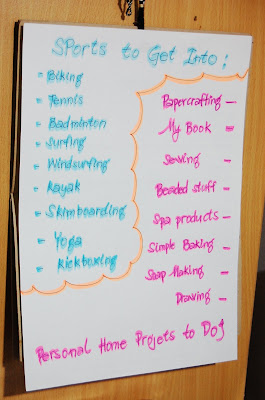 Sports to Get Into:
- Biking
- Tennis
- Badminton
- Surfing
- Windsurfing
- Kayak
- Skimboarding
- Yoga
- Kickboxing
Papercrafting -
My Book -
Sewing -
Beaded stuff -
Spa products -
Simple Baking -
Soap Making -
Drawing -
Personal Home Projets to Do!